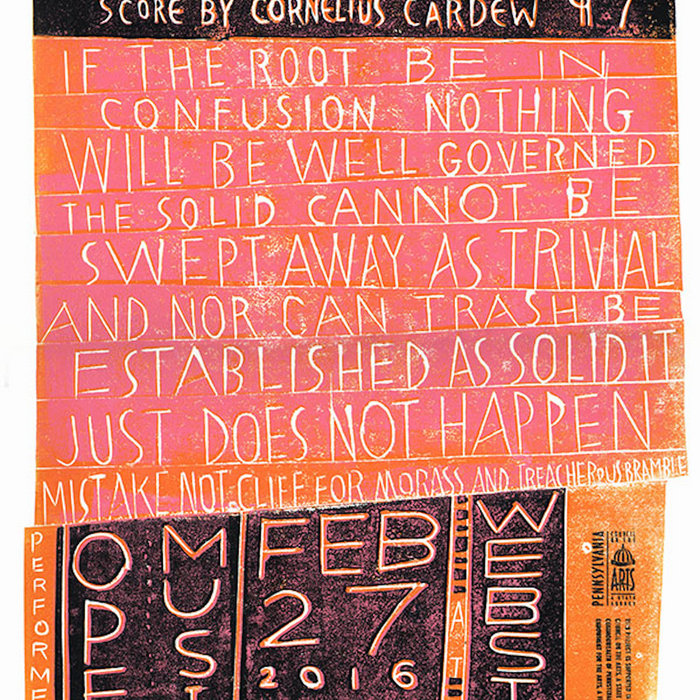 SCORE BY CORNELIUS CARDEW
IF THE ROOT BE IN
CONFUSION NOTHING
WILL BE WELL GOVERNED
THE SOLID CANNOT BE
SWEPT AWAY AS TRIVIAL
AND NOR CAN TRASH BE
ESTABLISHED AS SOLID IT
JUST DOES NOT HAPPEN
MISTAKE NOT CLIFF FOR MORASS AND TREACHEROUS BRAMBLE
PERFORME
OPE
MUSI
FEB
27
2016
AT
WEBS
PENNSYLVANIA
COUNCIL
ON THE
ARTS
A STATE
AGENCY